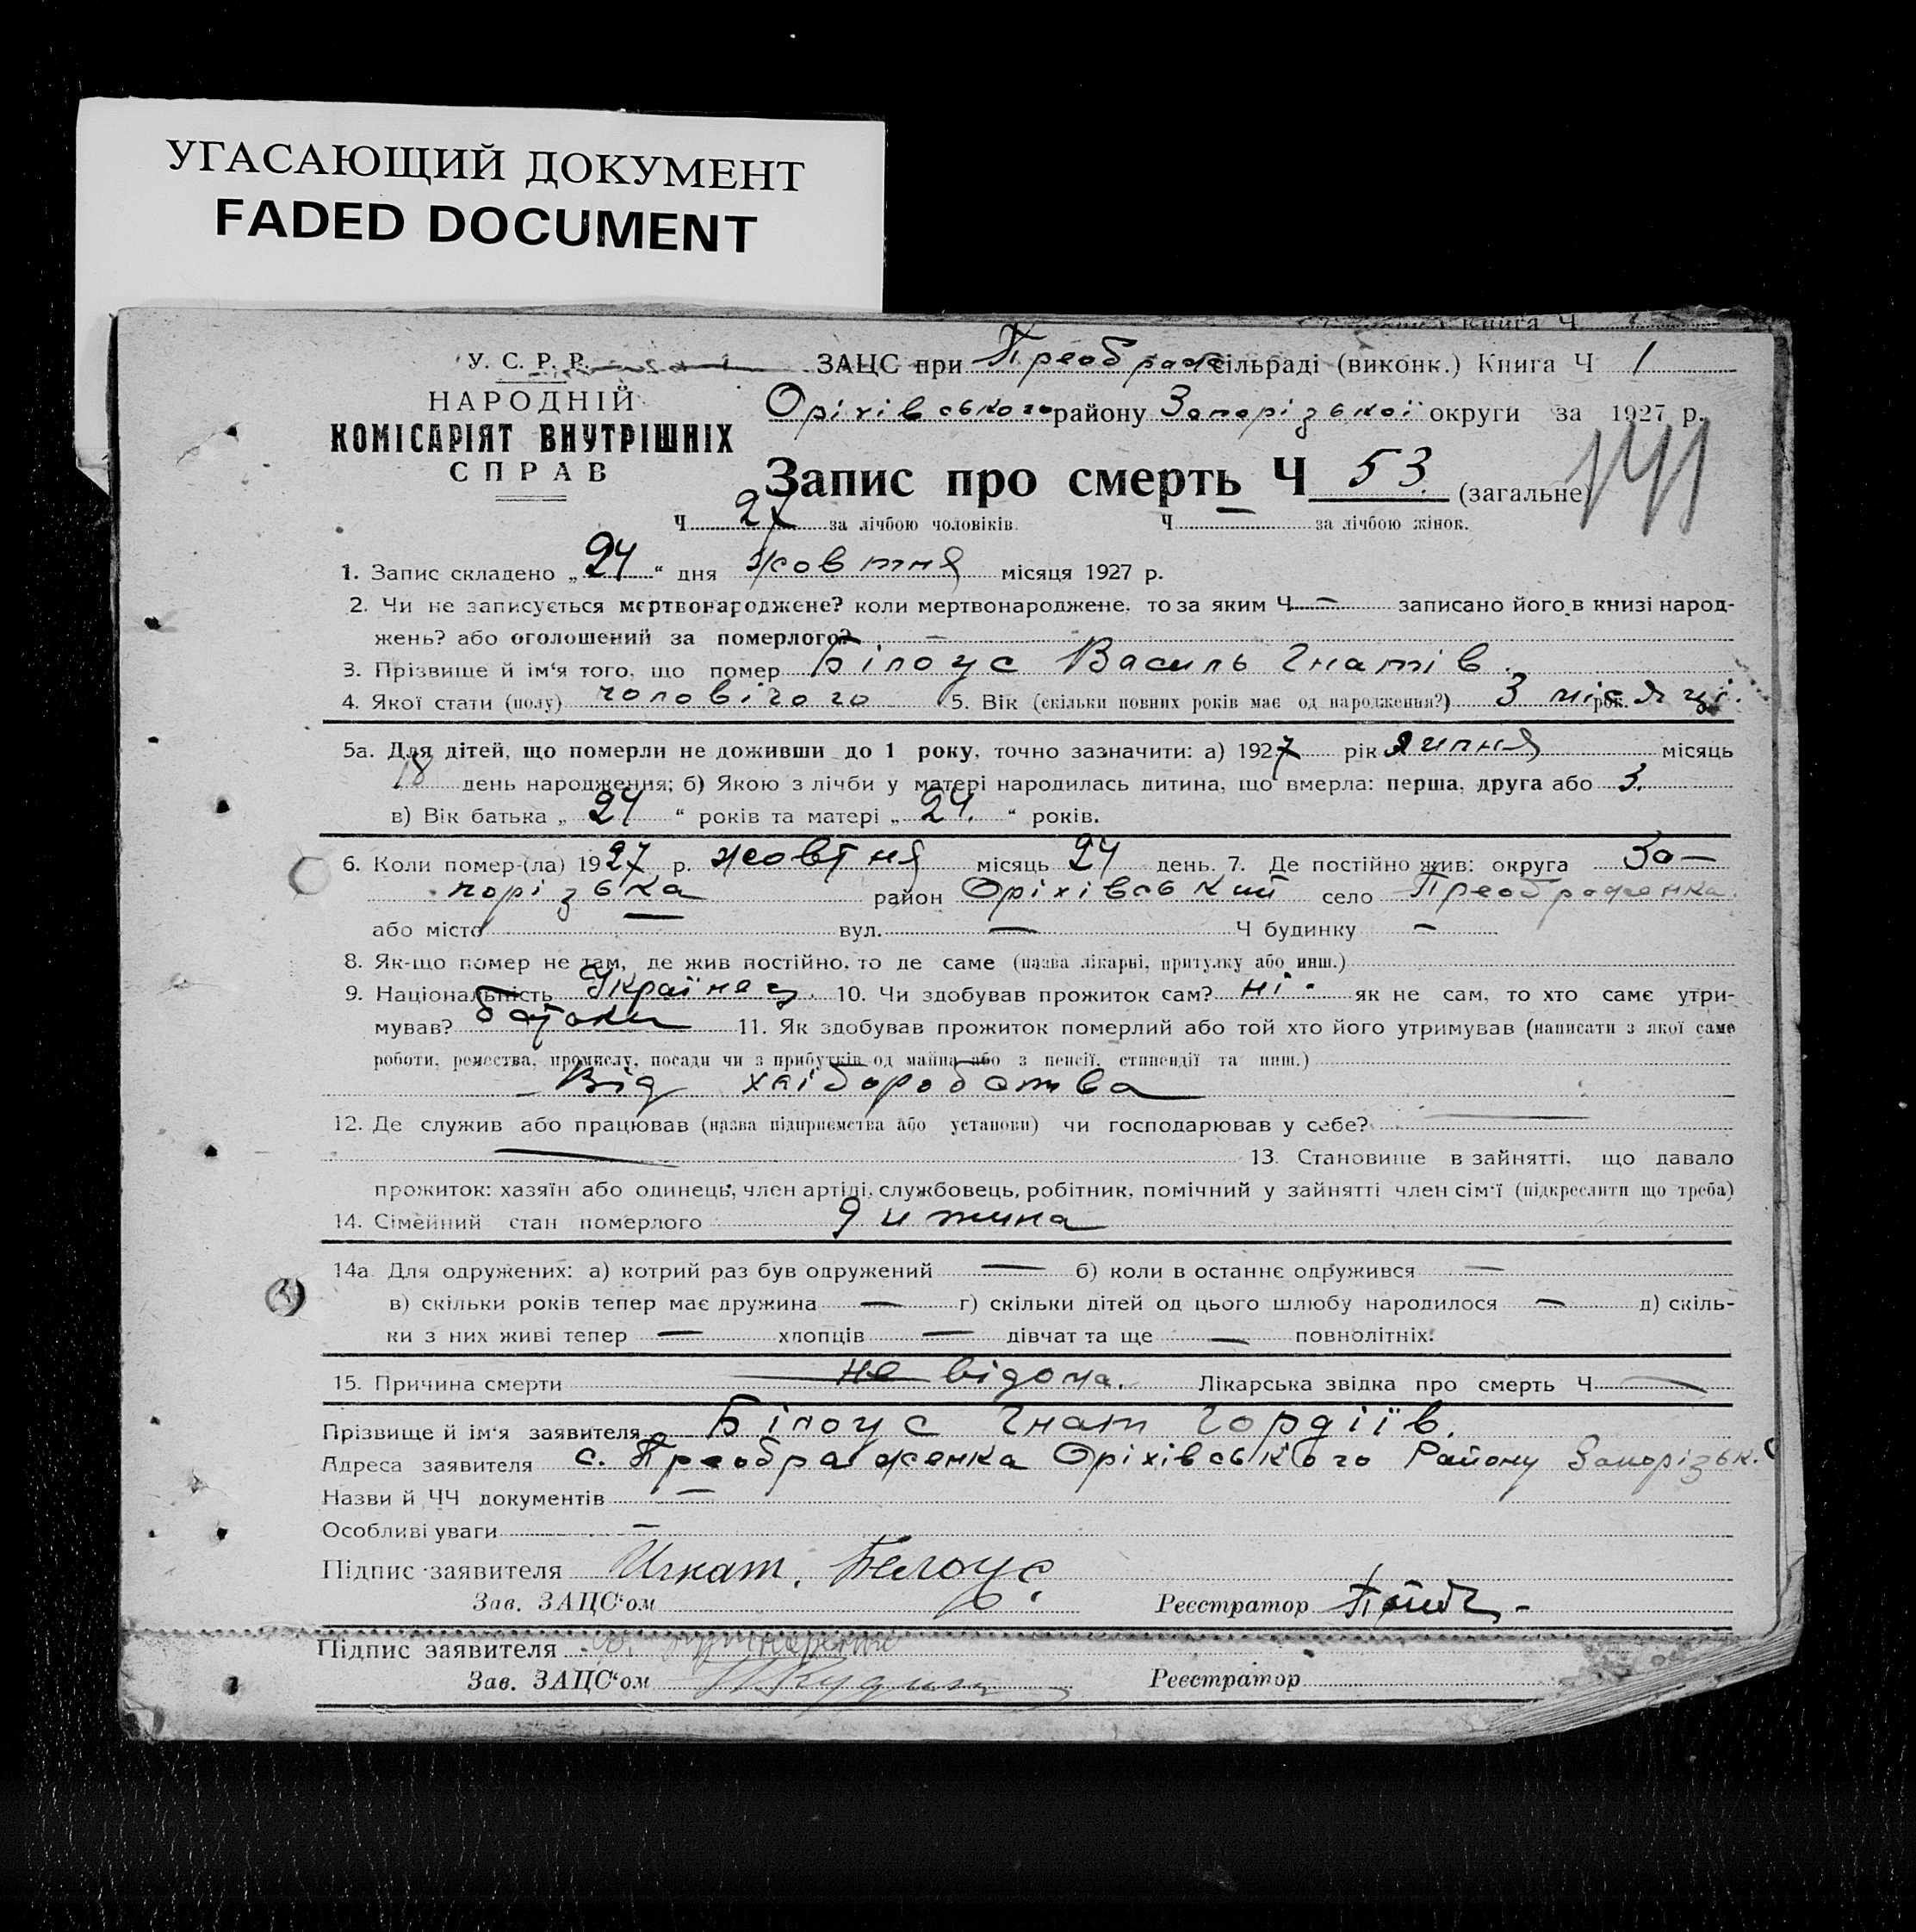 УГАСАЮЩИЙ ДОКУМЕНТ
FADED DOCUMENT
книга Ч
У. С. Р. Р. ЗАЦС при Преображ сільраді (виконк.) Книга Ч 1
НАРОДНІЙ Оріхівського району Запорізької округи за 1927 р.
КОМІСАРІЯТ ВНУТРІШНІХ
СПРАВ
Запис про смерть Ч 53. (загальне) 141
Ч 27 за лічбою чоловіків. Ч — за лічбою жінок.
1. Запис складено „24“ дня жовтня місяця 1927 р.
2. Чи не записується мертвонароджене? коли мертвонароджене, то за яким Ч — записано його в книзі народ-
жень? або оголошений за померлого? —
3. Прізвище й ім‘я того, що помер Білоус Василь Гнатів.
4. Якої стати (полу) чоловічого 5. Вік (скільки повних років має од народження?) 3 місяці. рок.
5а. Для дітей, що померли не доживши до 1 року, точно зазначити: а) 1927 рік липня місяць
18 день народження; б) Якою з лічби у матері народилась дитина, що вмерла: перша, друга або 3.
в) Вік батька „24“ років та матері „24.“ років.
6. Коли помер-(ла) 1927 р. жовтня місяць 24 день. 7. Де постійно жив: округа За—
порізька район Оріхівський село Преображенка.
або місто — вул. — Ч будинку —
8. Як-що помер не там, де жив постійно, то де саме (назва лікарні, притулку або инш.)
9. Національність Українец. 10. Чи здобував прожиток сам? ні. як не сам, то хто саме утри-
мував? батьки 11. Як здобував прожиток померлий або той хто його утримував (написати з якої саме
роботи, ремества, промислу, посади чи з прибутків од майна або з пенсії, стипендії та инш.)
Від хліборобства
12. Де служив або працював (назва підприємства або установи) чи господарював у себе? —
— 13. Становище в зайнятті, що давало
прожиток: хазяїн або одинець, член артілі, службовець, робітник, помічний у зайнятті член сім‘ї (підкреслити що треба)
14. Сімейний стан померлого дитина
14а. Для одружених: а) котрий раз був одружений — б) коли в останнє одружився —
в) скільки років тепер має дружина — г) скільки дітей од цього шлюбу народилося — д) скіль-
ки з них живі тепер — хлопців — дівчат та ще — повнолітніх.
15. Причина смерти не відома. Лікарська звідка про смерть Ч —
Прізвище й ім‘я заявителя Білоус Гнат Гордіїв.
Адреса заявителя с. Преображенка Оріхівського Району Запорізьк. О
Назви й ЧЧ документів —
Особливі уваги —
Підпис заявителя Игнат. Белоус
Зав. ЗАЦС‘ом Реєстратор
Підпис заявителя
Зав. ЗАЦС‘ом Реєстратор